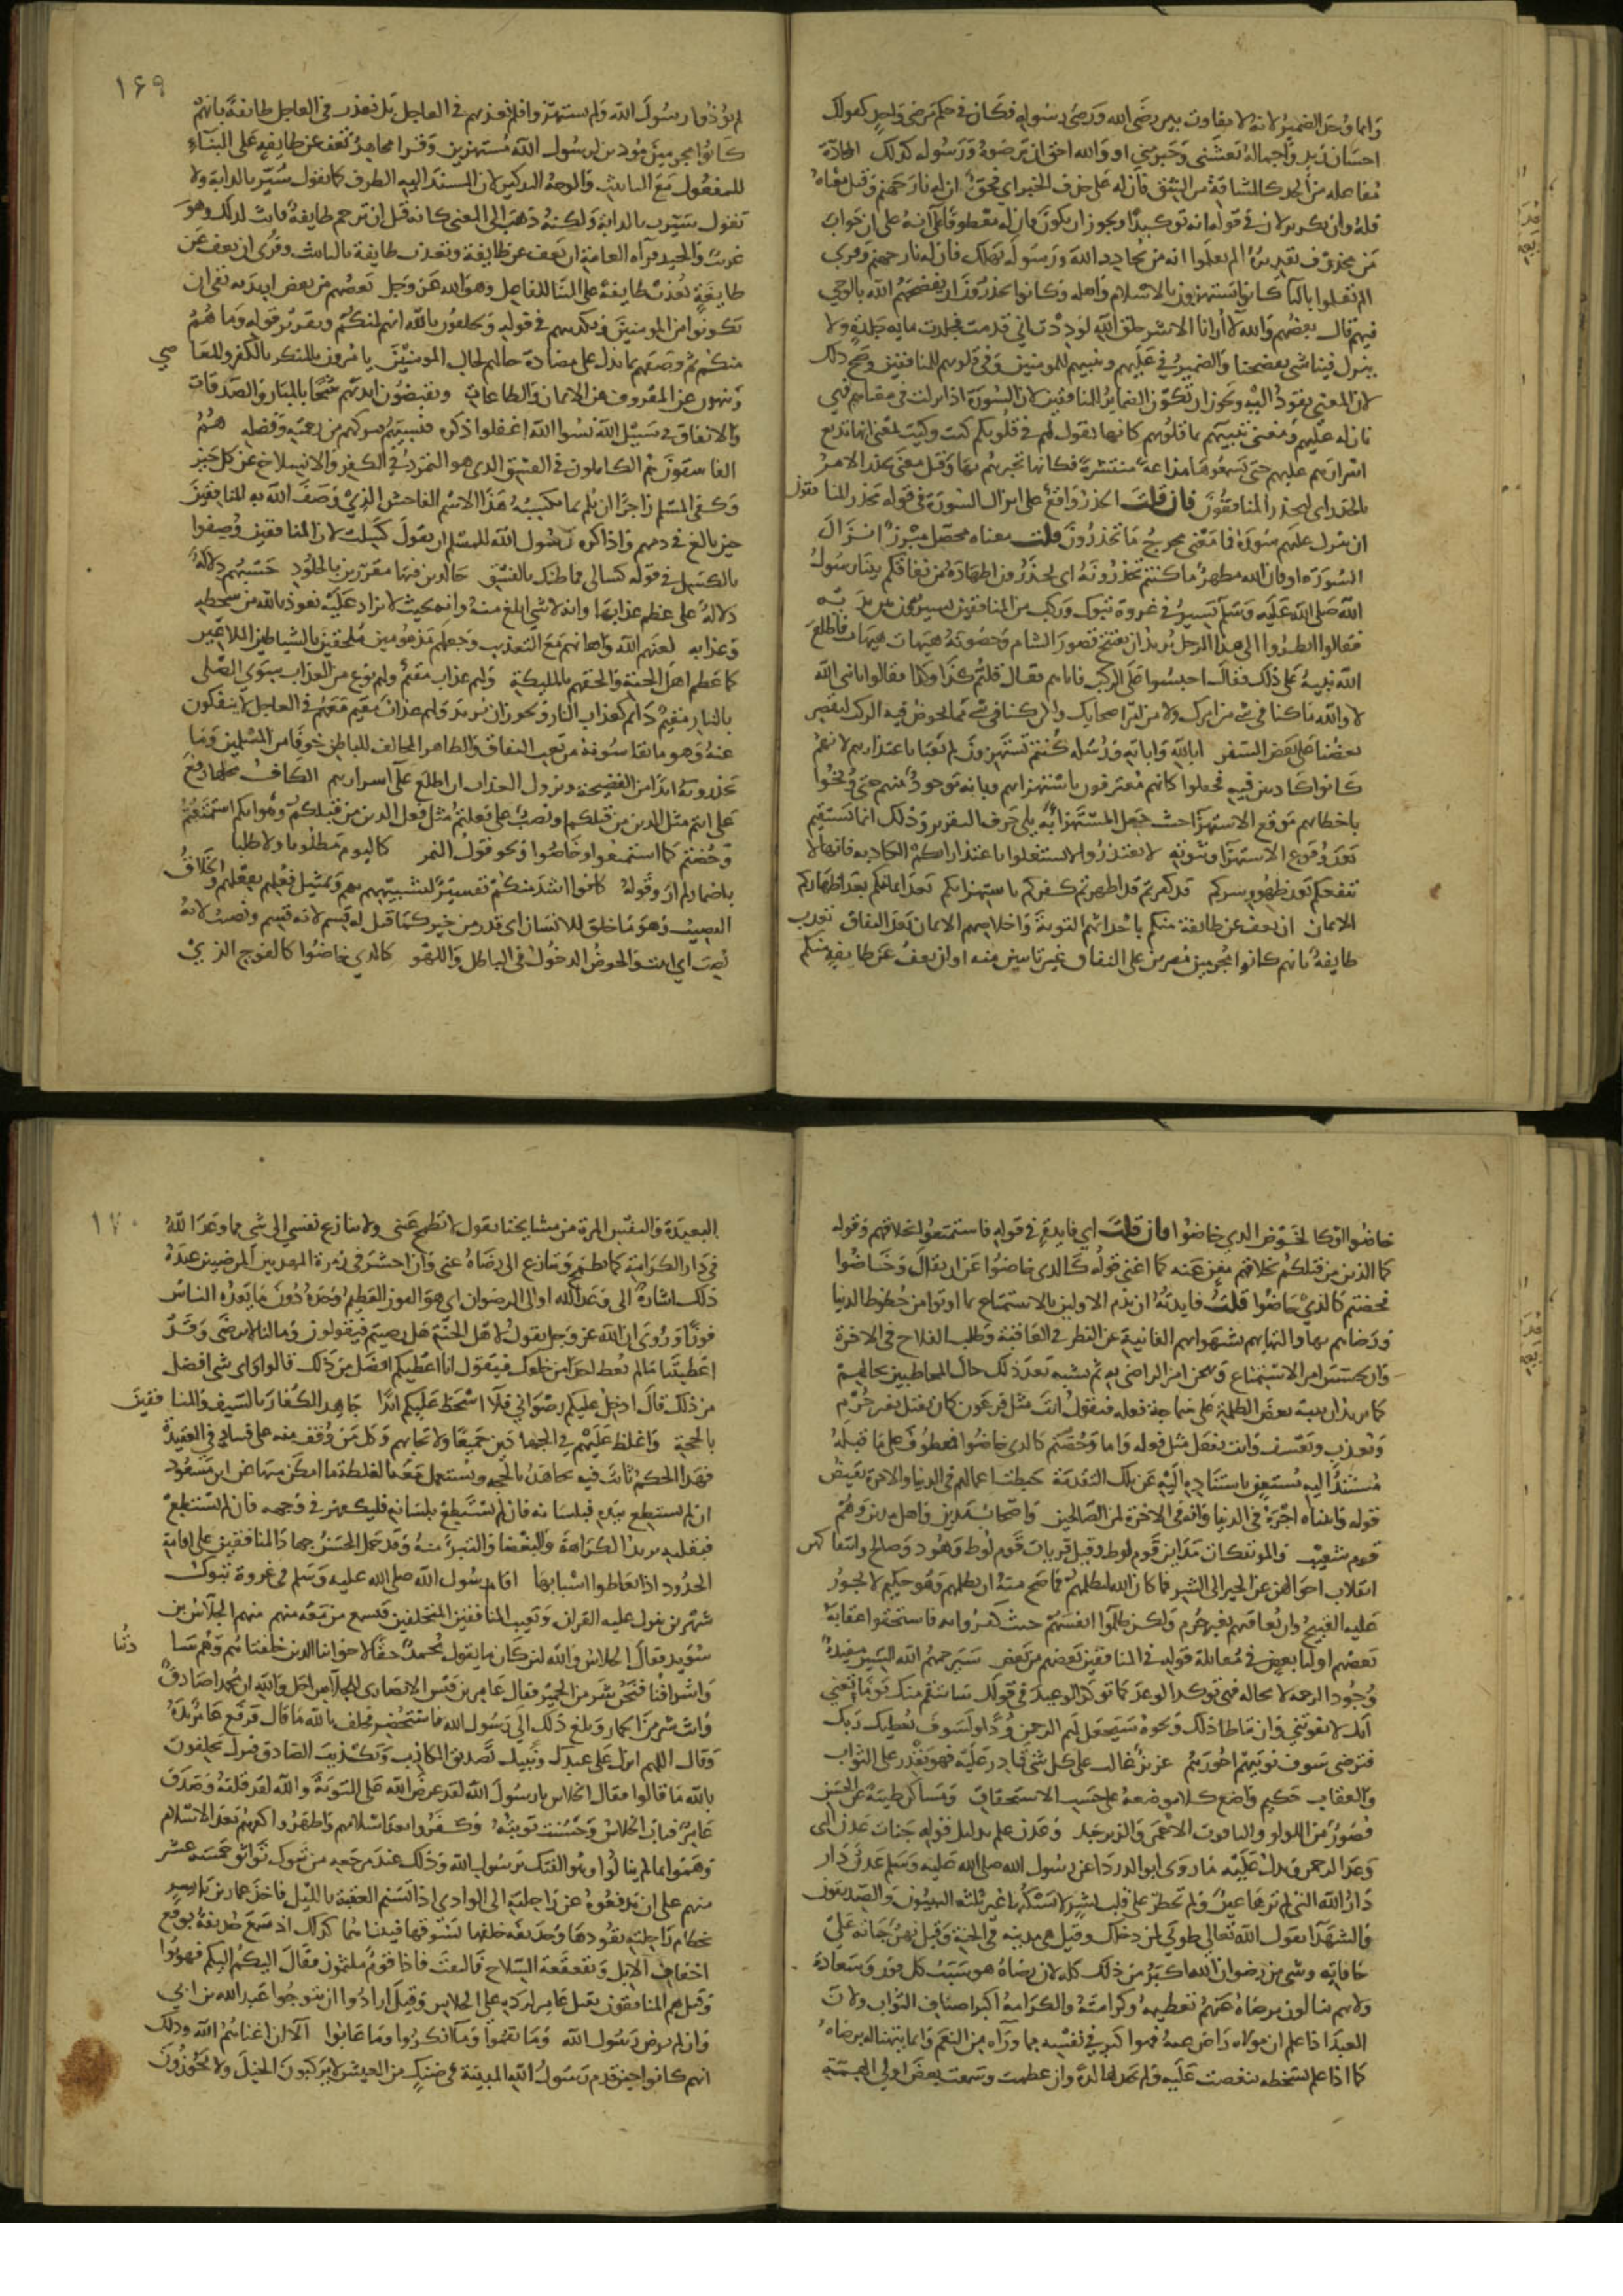 وانما وحد الضمير لانه لا تفاوت بين رضى الله ورضى رسوله فكان في حكم مرضى واحد كقولك
احسان زيد واجماله نعشني وجبر مني او والله احق ان ترضوه ورسوله كذلك المحادة
مفاعلة من الحد كالمشاقة من الشق فان له على حذف الخبر اي فحق ان له نار جهنم وقيل معناه
فله وان تكرير لان في قوله انه توكيدا ويجوز ان يكون فان له معطوفا على انه على ان جواب
من محذوف تقديره الم يعلموا انه من يحادد الله ورسوله يهلك فان له نار جهنم وقرى
الم تعلموا بالتا كانوا يستهزون بالاسلام واهله وكانوا يحذرون ان يفضحهم الله بالوحي
فيهم قال بعضهم والله لا ارانا الا شر خلق الله لوددت اني قدمت فجلدت مايه جلدة ولا
ينزل فينا شي يفضحنا والضمير في عليهم وتنبيهم للمومنين وفي قلوبهم للمنافقين وصح ذلك
لان المعنى يقود اليه ويجوز ان تكون الضماير للمنافقين لان السورة اذا نزلت في معناهم فهي
نازله عليهم ومعنى تنبيهم بما في قلوبهم كانها تقول لهم في قلوبكم كيت وكيت يعني انها تذيع
اسرارهم عليهم حتى يسمعوها مذاعة منتشرة فكانها تخبرهم بها وقيل معنى يحذر الامر
بالحذر اي ليحذر المنافقون فان قلت الحذر واقع على انزال السورة في قوله يحذر المنافقون
ان تنزل عليهم سورة فما معنى مخرج ما تحذرون قلت معناه محصل مبرز انزال
السورة او وان الله مظهر ما كنتم تحذرونه اي تحذرون اظهاره من نفاقكم بينا رسول
الله صلى الله عليه وسلم يسير في غزوة تبوك وركب من المنافقين يسيرون بين يديه
فقالوا انظروا الى هذا الرجل يريد ان يفتتح قصور الشام وحصونه هيهات هيهات فاطلع
الله نبيه على ذلك فقال احبسوا على الركب فاتاهم فقال قلتم كذا وكذا فقالوا يا نبي الله
لا والله ما كنا في شي من امرك ولا من امر اصحابك ولكن كنا في شي مما يخوض فيه الركب ليقصر
بعضنا على بعض السفر ابالله واياته ورسوله كنتم تستهزون لم يعبا باعتذارهم لانهم
كانوا كاذبين فيه فجعلوا كانهم معترفون باستهزايهم وبانه موجود منهم حتى وبخوا
باخطايهم موقع الاستهزا حيث جعل المستهزا به يلي حرف التقرير وذلك انما يستقيم
بعد وقوع الاستهزا وثبوته لا تعتذروا لا تشتغلوا باعتذاراتكم الكاذبه فانها لا
تنفعكم بعد ظهور سركم قد كفرتم قد اظهرتم كفركم باستهزايكم بعد ايمانكم بعد اظهاركم
الايمان ان نعف عن طائفة منكم باحداثهم التوبة واخلاصهم الايمان بعد النفاق نعذب
طايفة بانهم كانوا مجرمين مصرين على النفاق غير تايبين منه او ان نعف عن طايفة منكم
١٦٩
لم يوذوا رسول الله ولم يستهزوا فلم نعذبهم في العاجل بل نعذب في العاجل طايفة بانهم
كانوا مجرمين موذين لرسول الله مستهزين وقرا مجاهد ان تعف عن طايفة على البناء
للمفعول مع التانيث والوجه التذكير لان المسند اليه الظرف كما تقول سير بالدابة ولا
تقول سيرت بالدابة ولكنه ذهب الى المعنى كانه قيل ان ترحم طايفة فانث لذلك وهو
غريب والجيد قراة العامة ان يعف عن طايفة وتعذب طايفة بالتانيث وقرى ان يعف عن
طايفة يعذب طايفة على البنا للفاعل وهو الله عز وجل بعضهم من بعض اريد به نفي ان
يكونوا من المومنين وتكذيبهم في قولهم ويحلفون بالله انهم لمنكم وتقرير قوله وما هم
منكم ثم وصفهم بما يدل على مضادة حالهم لحال المومنين يامرون بالمنكر بالكفر والمعاصي
وينهون عن المعروف عن الايمان والطاعات ويقبضون ايديهم شحا بالمبار والصدقات
والانفاق في سبيل الله نسوا الله اغفلوا ذكره فنسيهم فتركهم من رحمته وفضله هم
الفاسقون هم الكاملون في الفسق الذي هو التمرد في الكفر والانسلاخ عن كل خير
وكفى المسلم زاجرا ان يلم بما يكسبه هذا الاسم الفاحش الذي وصف الله به المنافقين
حين بالغ في ذمهم واذا كره رسول الله للمسلم ان يقول كسلت لان المنافقين وصفوا
بالكسل في قوله كسالى فما ظنك بالفسق خالدين فيها مقدرين بالخلود حسبهم دلالة
دلالة على عظم عذابها وانه لا شي ابلغ منه وانه بحيث لا يزاد عليه نعوذ بالله من سخطه
وعذابه لعنهم الله واهانهم مع التعذيب وجعلهم مذمومين ملحقين بالشياطين الملاعين
كما عظم اهل الجنة والحقهم بالمليكة ولهم عذاب مقيم ولهم نوع من العذاب سوى الصلى
بالنار مقيم دايم كعذاب النار ويجوز ان يريد ولهم عذاب مقيم معهم في العاجل لا ينفكون
عنه وهو ما يقاسونه من تعب النفاق والظاهر المخالف للباطن خوفا من المسلمين وما
يحذرونه ابدا من الفضيحة ونزول العذاب ان اطلع على اسرارهم الكاف محلها رفع
على انتم مثل الذين من قبلكم او نصب على فعلتم مثل فعل الذين من قبلكم وهو انكم استمتعتم
وخضتم كما استمتعوا وخاضوا ونحو قول النمر كاليوم مطلوبا ولا طلبا
باضمار لم ار وقوله كانوا اشد منكم تفسير لتشبيههم بهم وتمثيل فعلهم بفعلهم والخلاق
النصيب وهو ما خلق للانسان اي قدر من خير كما قيل له قسم لانه قسم ونصيب لانه
نصب اي اثبت والخوض الدخول في الباطل واللهو كالذي خاضوا كالفوج الذي
خاضوا او كالخوض الذي خاضوا فان قلت اي فايدة في قوله فاستمتعوا بخلاقهم وقوله
كما الذين من قبلكم بخلاقهم مغن عنه كما اغنى قوله كالذي خاضوا عن ان يقال وخاضوا
فخضتم كالذي خاضوا قلت فايدته ان يذم الاولين بالاستمتاع بما اوتوا من حظوظ الدنيا
ورضاهم بها والتهايهم بشهواتهم الفانية عن النظر في العاقبة وطلب الفلاح في الاخرة
وان يخسس امر الاستمتاع ويهجن امر الراضي به ثم يشبه بعد ذلك حال المخاطبين بحالهم
كما تريد ان تنبه بعض الظلمة على سماجة فعله فتقول انت مثل فرعون كان يقتل بغير جرم
ويعذب ويعسف وانت تفعل مثل فعله واما وخضتم كالذي خاضوا فمعطوف على ما قبله
مستند اليه مستغن باستناده اليه عن تلك التقدمة حبطت اعمالهم في الدنيا والاخرة نقيض
قوله واتيناه اجره في الدنيا وانه في الاخرة لمن الصالحين واصحاب مدين واهل مدين وهم
قوم شعيب والموتفكات مداين قوم لوط وقيل قريات قوم لوط وهود وصالح وايتفاكهن
انقلاب احوالهن عن الخير الى الشر فما كان الله ليظلمهم فما صح منه ان يظلمهم وهو حكيم لا يجوز
عليه القبيح وان يعاقبهم بغير جرم ولكن ظلموا انفسهم حيث كفروا به فاستحقوا عقابه
بعضهم اوليا بعض في مقابلة قوله في المنافقين بعضهم من بعض سيرحمهم الله السين مفيدة
وجود الرحمة لا محاله فهي توكد الوعد كما توكد الوعيد في قولك سانتقم منك يوما تعني
انك لا تفوتني وان تباطا ذلك ونحوه سيجعل لهم الرحمن ودا ولسوف يعطيك ربك
فترضى سوف نوتيهم اجورهم عزيز غالب على كل شي قادر عليه فهو يقدر على الثواب
والعقاب حكيم واضع كلا موضعه على حسب الاستحقاق ومساكن طيبة عن الحسن
قصورا من اللولو والياقوت الاحمر والزبرجد وعدن علم بدليل قوله جنات عدن التي
وعد الرحمن ويدل عليه ما روى ابو الدرداء عن رسول الله صلى الله عليه وسلم عدن دار
دار الله التي لم ترها عين ولم تخطر على قلب بشر لا يسكنها غير ثلثة النبيون والصديقون
والشهدا يقول الله تعالى طوبى لمن دخلك وقيل هي مدينه في الجنة وقيل نهر جناته على
حافاته وشي من رضوان الله اكبر من ذلك كله لان رضاه هو سبب كل فوز وسعادة
ولانهم ينالون برضاه عنهم تعظيمه وكرامته والكرامة اكبر اصناف الثواب ولان
العبد اذا علم ان مولاه راض عنه فهو اكبر في نفسه مما وراه من النعم وانما يتهنا له برضاه
كما اذا علم بسخطه تنغصت عليه ولم يجد لها لذة وان عظمت وسمعت بعض اولي الهمة
١٧٠
البعيدة والنفس المرة من مشايخنا يقول لا تطمح عيني ولا تنازع نفسي الى شي مما وعد الله
في دار الكرامة كما تطمح وتنازع الى رضاه عني وان احشر في زمرة المهديين المرضيين عنده
ذلك اشارة الى وعد الله او الى الرضوان اي هو الفوز العظيم وحده دون ما يعده الناس
فوزا وروى ان الله عز وجل يقول لاهل الجنة هل رضيتم فيقولون وما لنا لا نرضى وقد
اعطيتنا ما لم تعط احدا من خلقك فيقول انا اعطيكم افضل من ذلك قالوا واي شي افضل
من ذلك قال ادخل عليكم رضواني فلا اسخط عليكم ابدا جاهد الكفار بالسيف والمنافقين
بالحجة واغلظ عليهم في الجهادين جميعا ولا تحابهم وكل من وقف منه على فساد في العقيدة
فهذا الحكم ثابت فيه يجاهد بالحجه ويستعمل معه الغلظة ما امكن منها عن ابن مسعود
ان لم يستطع بيده فبلسانه فان لم يستطع بلسانه فليكفهر في وجهه فان لم يستطع
فبقلبه يريد الكراهة والبغضا والتبرا منه وقد حمل الحسن جهاد المنافقين على اقامة
الحدود اذا تعاطوا اسبابها اقام رسول الله صلى الله عليه وسلم في غزوة تبوك
شهرين ينزل عليه القران ويعيب المنافقين المتخلفين فيسمع من معه منهم منهم الجلاس بن
سويد فقال الجلاس والله لئن كان ما يقول محمد حقا لاخواننا الذين خلفناهم وهم ساداتنا
واشرافنا فنحن شر من الحمير فقال عامر بن قيس الانصاري للجلاس اجل والله ان محمدا صادق
وانت شر من الحمار وبلغ ذلك الى رسول الله فاستحضر فحلف بالله ما قال فرفع عامر يده
وقال اللهم انزل على عبدك ونبيك تصديق الكاذب وتكذيب الصادق فنزل يحلفون
بالله ما قالوا فقال الجلاس يا رسول الله لقد عرض الله على التوبة والله لقد قلته وصدق
عامر فتاب الجلاس وحسنت توبته وكفروا بعد اسلامهم واظهروا كفرهم بعد الاسلام
وهموا بما لم ينالوا وهو الفتك برسول الله وذلك عند مرجعه من تبوك تواثق خمسة عشر
منهم على ان يدفعوه عن راحلته الى الوادي اذا تسنم العقبة بالليل فاخذ عمار بن ياسر
بخطام راحلته يقودها وحذيفه خلفها يسوقها فبينا هما كذلك اذ سمع حذيفة بوقع
اخفاف الابل وبقعقعة السلاح فالتفت فاذا قوم ملثمون فقال اليكم اليكم فهربوا
وقيل هم المنافقون بقتل عامر لرده على الجلاس وقيل ارادوا ان يتوجوا عبد الله بن ابي
وان لم يرض رسول الله وما نقموا وما انكروا وما عابوا الا ان اغناهم الله وذلك
انهم كانوا حين قدم رسول الله المدينة في ضنك من العيش لا يركبون الخيل ولا يحوزون